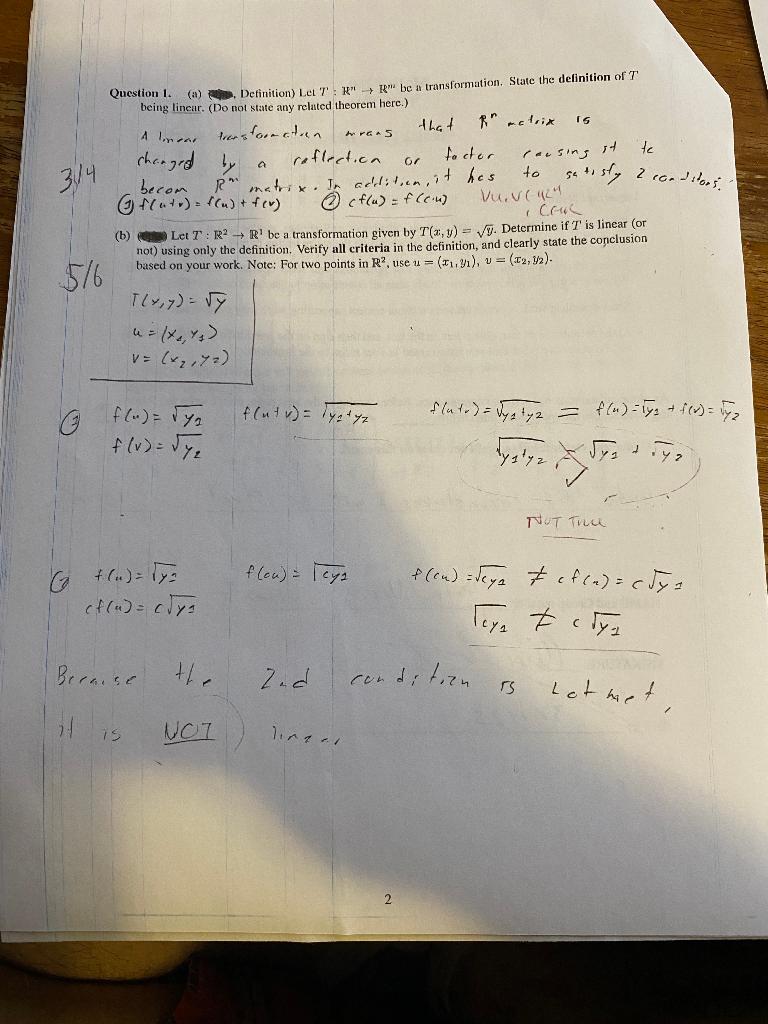 Question 1. (a) Definition) Let T : ℝⁿ → ℝᵐ be a transformation. State the definition of T
being linear. (Do not state any related theorem here.)
A linear transformation means that ℝⁿ matrix is
changed by a reflection or factor causing it to
becom ℝᵐ matrix. In addition, it has to satisfy 2 conditions.
3/4
① f(u+v) = f(u) + f(v) ② cf(u) = f(cu) ∀u,v∈
(b) Let T : ℝ² → ℝ¹ be a transformation given by T(x, y) = √y. Determine if T is linear (or
not) using only the definition. Verify all criteria in the definition, and clearly state the conclusion
based on your work. Note: For two points in ℝ², use u = (x₁, y₁), v = (x₂, y₂).
5/6
T(x,y) = √y
u = (x₁, y₁)
v = (x₂, y₂)
① f(u) = √y₁ f(u+v) = √y₁+y₂ f(u+v) = √y₁+y₂ = f(u) = √y₁ + f(v) = √y₂
f(v) = √y₂ √y₁+y₂ = √y₁ + √y₂
NOT TRUE
② f(u) = √y₁ f(cu) = √cy₁ f(cu) = √cy₁ ≠ cf(u) = c√y₁
cf(u) = c√y₁ √cy₁ ≠ c√y₁
Because the 2nd condition is not met,
it is NOT linear
2